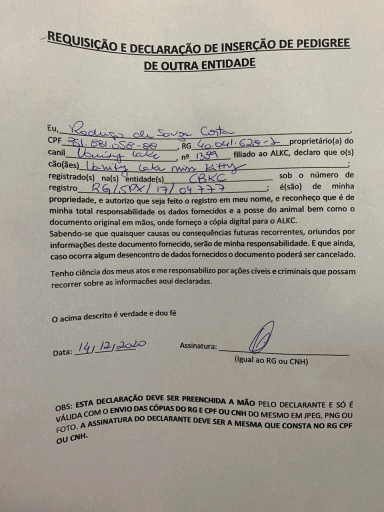 REQUISIÇÃO E DECLARAÇÃO DE INSERÇÃO DE PEDIGREE
DE OUTRA ENTIDADE
Eu, Rodrigo de Souza Costa
CPF 351.881.058-88, RG 40.041.628-1 proprietário(a) do
canil Vanity Cake, nº 1399 filiado ao ALKC, declaro que o(s)
cão(ães) Vanity Cake Miss Kitty;
registrado(s) na(s) entidade(s) CBKC sob o número de
registro RG/SPX/17/04777; é(são) de minha
propriedade, e autorizo que seja feito o registro em meu nome, e reconheço que é de
minha total responsabilidade os dados fornecidos e a posse do animal bem como o
documento original em mãos, onde forneço a cópia digital para o ALKC.
Sabendo-se que quaisquer causas ou consequências futuras recorrentes, oriundos por
informações deste documento fornecido, serão de minha responsabilidade. E que ainda,
caso ocorra algum desencontro de dados fornecidos o documento poderá ser cancelado.
Tenho ciência dos meus atos e me responsabilizo por ações cíveis e criminais que possam
recorrer sobre as informações aqui declaradas.
O acima descrito é verdade e dou fé
Data: 14/12/2020 Assinatura:
(Igual ao RG ou CNH)
OBS: ESTA DECLARAÇÃO DEVE SER PREENCHIDA A MÃO PELO DECLARANTE E SÓ É
VÁLIDA COM O ENVIO DAS CÓPIAS DO RG E CPF OU CNH DO MESMO EM JPEG, PNG OU
FOTO. A ASSINATURA DO DECLARANTE DEVE SER A MESMA QUE CONSTA NO RG CPF
OU CNH.